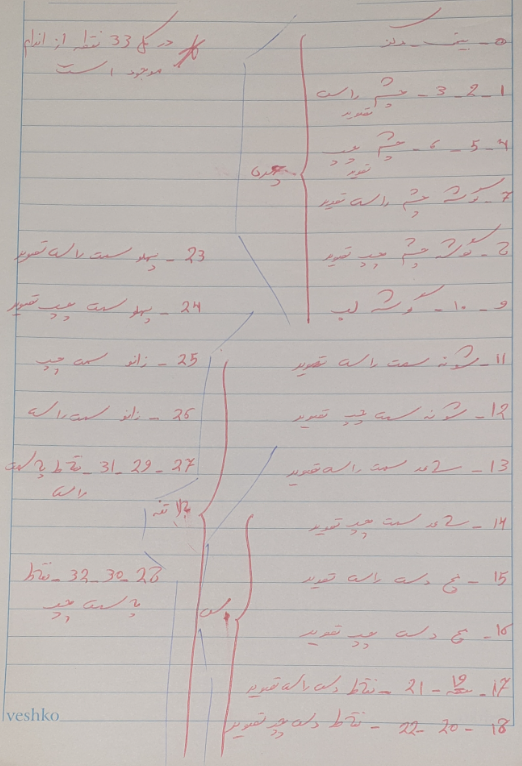 در کل 33 نقطه از اندام
موجود است
0- بینی
1 - 2 - 3 - چشم راست
تصویر
4 - 5 - 6 - چشم چپ
تصویر
7 - گوشه چشم راست تصویر
8 - گوشه چشم چپ تصویر
9 - 10 - گوشه لب
11 - شونه سمت راست تصویر
12 - شونه سمت چپ تصویر
13 - ساعد سمت راست تصویر
14 - ساعد سمت چپ تصویر
15 - مچ دست راست تصویر
16 - مچ دست چپ تصویر
17 - 19 - 21 - نقاط دست راست تصویر
18 - 20 - 22 - نقاط دست چپ تصویر
بالا تنه
دست
23 - پهلو سمت راست تصویر
24 - پهلو سمت چپ تصویر
25 - زانو سمت چپ
26 - زانو سمت راست
27 - 29 - 31 - نقاط پا سمت
راست
28 - 30 - 32 - نقاط
پا سمت چپ
veshko